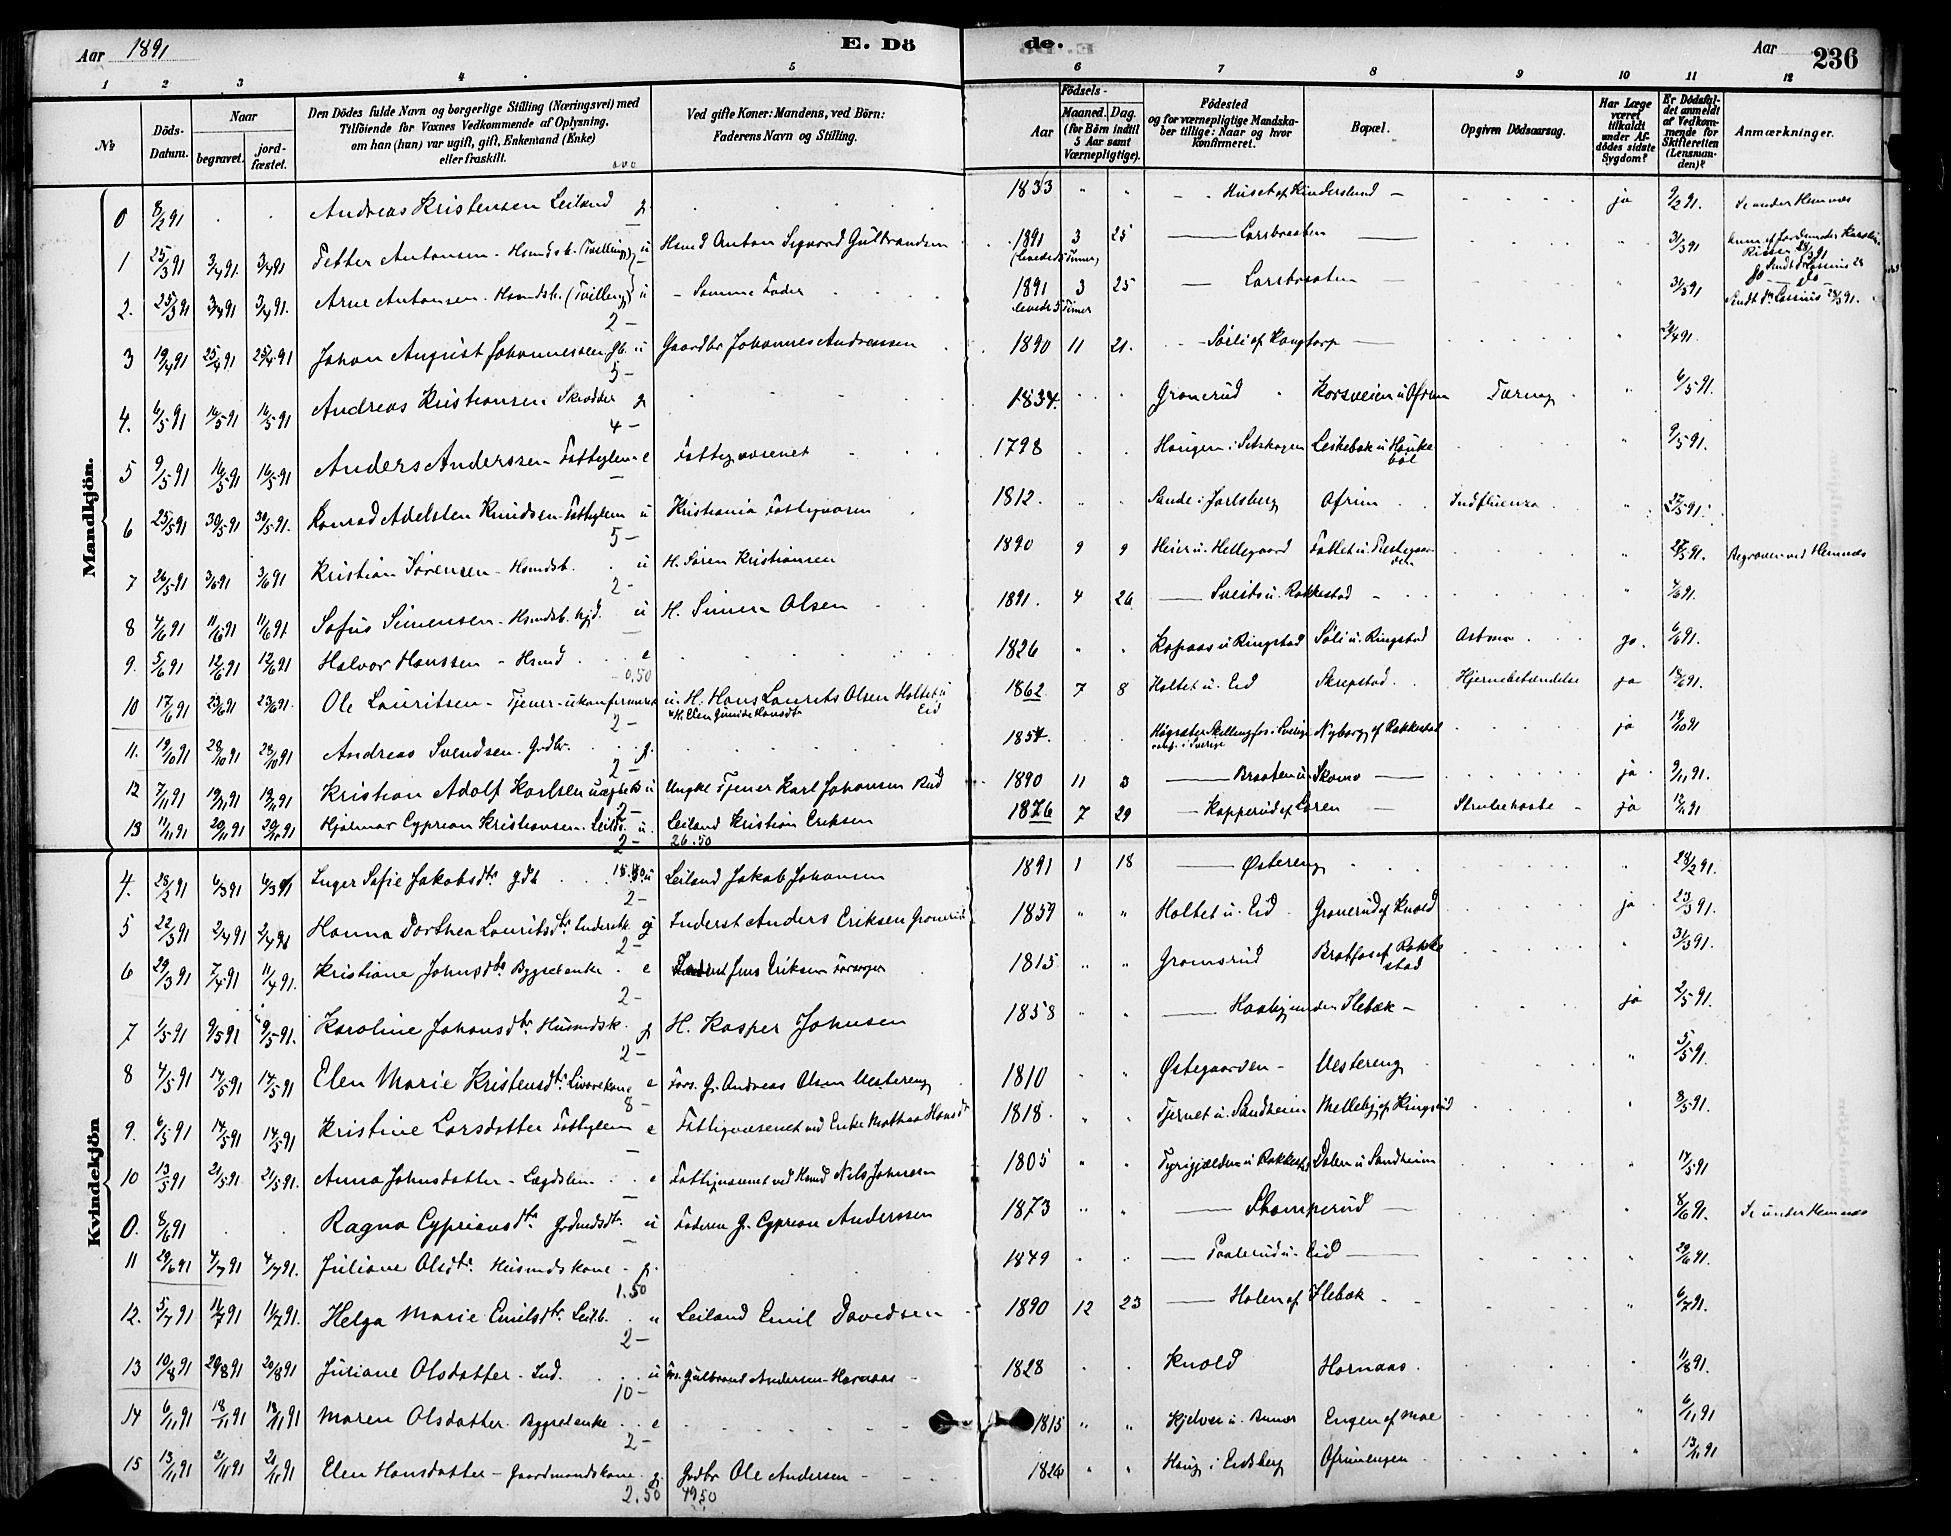 Aar 1891
E. Döde.
Aar
236
1 2 3 4 5 6 7 8 9 10 11 12
№
Döds-Datum.
Naar
begravet.
jordfæstet.
Den Dödes fulde Navn og borgerlige Stilling (Næringsvei) med
Tilföiende for Voxnes Vedkommende af Oplysning,
om han (hun) var ugift, gift, Enkemand (Enke)
eller fraskilt.
Ved gifte Koner: Mandens, ved Börn:
Faderens Navn og Stilling.
Födsels-
Aar
Maaned.
Dag.
(for Börn indtil
5 Aar samt
Værnepligtige).
Födested
og for værnepligtige Mandskaber tillige: Naar og hvor
konfirmeret.
Bopæl.
Opgiven Dödsaarsag.
Har Læge været tilkaldt under Afdödes sidste Sygdom?
Er Dödsfaldet anmeldt af Vedkommende for Skifteretten (Lensmanden)?
Anmærkninger.
Mandkjön.
0 8/2 91 Andreas Kristensen Leiland g. 1833 Huset af Kinderslund ja 9/2 91. Se under Hemnæs
1 25/3 91 3/4 91 3/4 91 Petter Antonsen - Hsmdsb. (Tvilling) u Hsmd Anton Sigvard Gulbrandsen 1891 3 25 Larsbraaten 31/3 91
(levede 5 Timer)
2. 25/3 91 3/4 91 3/4 91. Arne Antonsen - Hsmdsb. (Tvilling) u - Samme Fader 1891 3 25 Larsbraaten 31/3 91
levede 5 Timer
2-
3 19/4 91 25/4 91 25/4 91 Johan August Johannessen Gb. u Gaardbr Johannes Andreassen 1890 11 21. Sörli af Kangtorp
5-
4. 6/5 91 16/5 91 16/5 91 Andreas Kristiansen Skrædder g 1834. Gronerud Korsveien u Ofrim Tæring 6/5 91.
4-
5 9/5 91 16/5 91 16/5 91 Anders Anderssen Fattiglem e Fattigvæsenet 1798 Haugen i Setskogen 9/5 91.
6 25/5 91 30/5 91 30/5 91. Konrad Adelsten Knudsen Fattiglem u Kristiania Fattigvæsen 1812. Sande i Jarlsberg Ofrim Indfluenza 27/5 91.
5-
7 26/5 91 3/6 91 3/6 91 Kristian Sörensen - Hsmdsb. u H. Sören Kristiansen 1890 9 9 Heier u. Hellegaard 27/5 91. Begraven ved Hemnæs
2-
8 4/6 91 11/6 91 11/6 91 Sofus Simensen - Hsmdsb. u H. Simen Olsen 1891. 4 26 u. Rakkestad 4/6 91.
9. 5/6 91 12/6 91 12/6 91 Halvor Hanssen - Hsmd e 1826 Kopaas u Ringstad Söli u. Ringstad Astma ja. 6/6 91.
0,50
10 17/6 91 23/6 91 23/6 91. Ole Lauritsen - Tjener - ukonfirmeret u. H. Hans Laurits Olsen Holtet u Eid 1862 7 8 Holtet u. Eid Skrepstad Hjernebetændelse ja 18/6 91.
2-
11. 19/10 91 28/10 91 28/10 91 Andreas Svendsen - Grdbr. g. 1854. i Sverige Nyborg af Rakkestad ja 19/10 91
2-
12 7/11 91 19/11 91 19/11 91 Kristian Adolf Karlsen uægteB u Ungkl Tjener Karl Johansen Rud 1890 11 3 Braaten u Skomo ja 9/11 91.
2-
13 11/11 91 20/11 91 20/11 91 Hjalmar Cyprian Kristiansen - Leilb. u. Leiland Kristian Eriksen 1876 7 29 Kopperud af Loren Strubehoste ja 12/11 91
2- 26.50
Kvindekjön
4. 28/2 91 6/3 91 6/3 91 Inger Sofie Jakobsdtr u Leiland Jakob Johansen 1891 1 18 Østereng 28/2 91.
2-
5 22/3 91 2/4 91 2/4 91 Hanna Dorthea Lauritsdtr Inderstk. g Inderst Anders Eriksen Gronerud 1859 Holtet u. Eid Gronerud af Knold ja 23/3 91.
2-
6 29/3 91 7/4 91 11/4 91. Kristiane Johnsdtr Bygselenke e Jens Eriksen Forsørger 1815 Gromsrud Bratfos af Rakkestad 31/3 91.
2-
7 1/5 91 9/5 91 9/5 91. Karoline Johansdtr Husmdsk. g H. Kasper Johnsen 1858 Haabij under Ilebæk ja 2/5 91.
2-
8 4/5 91 14/5 91 14/5 91 Elen Marie Kristensdtr Livørekone e Fors. G. Andreas Olsen Vestereng 1810 Østegaarden Vestereng 5/5 91.
8-
9. 6/5 91 14/5 91 14/5 91 Kristine Larsdatter Fattiglem e Fattigvæsenet ved Enke Mathea Hansdtr 1818 Tjernet u. Sandheim Mellebij af Kingsrud 8/5 91.
10 13/5 91 21/5 91 21/5 91. Anna Johnsdatter - Lægdslem e Fattigvæsenet ved Hsmd Nils Johnsen 1805 Dalen u Sandheim 14/5 91
0. 8/6 91 Ragna Cypriansdtr Grdmdsdtr u Faderen G. Cyprian Anderssen 1873 Skamperud 8/6 91. Se under Hemnæs
11 29/6 91 4/7 91 4/7 91. Juliane Olsdtr Husmdskone g. 1849 Paalerud u. Eid 29/6 91.
1.50
12. 5/7 91 11/7 91 11/7 91 Helga Marie Emilsdtr Leilb. " Leiland Emil Davidsen 1890 12 23 Holen af Ilebæk 6/7 91.
2-
13 10/8 91 20/8 91 20/8 91 Juliane Olsdatter - Ind. u Fors. Gulbrand Andersen - Hornaas 1828 Knold Hornaas 11/8 91.
10-
14 6/11 91 18/11 91 18/11 91 Maren Olsdatter - Bygselenke e 1815 Kjelver u. Engen af Moe 6/11 91
2-
15 13/11 91 21/11 91 21/11 91 Elen Hansdatter - Gaardmandskone g. Grdbr Ole Andersen 1826 Haug i Eidsberg Ofrimengen 13/11 91
2.50 4950